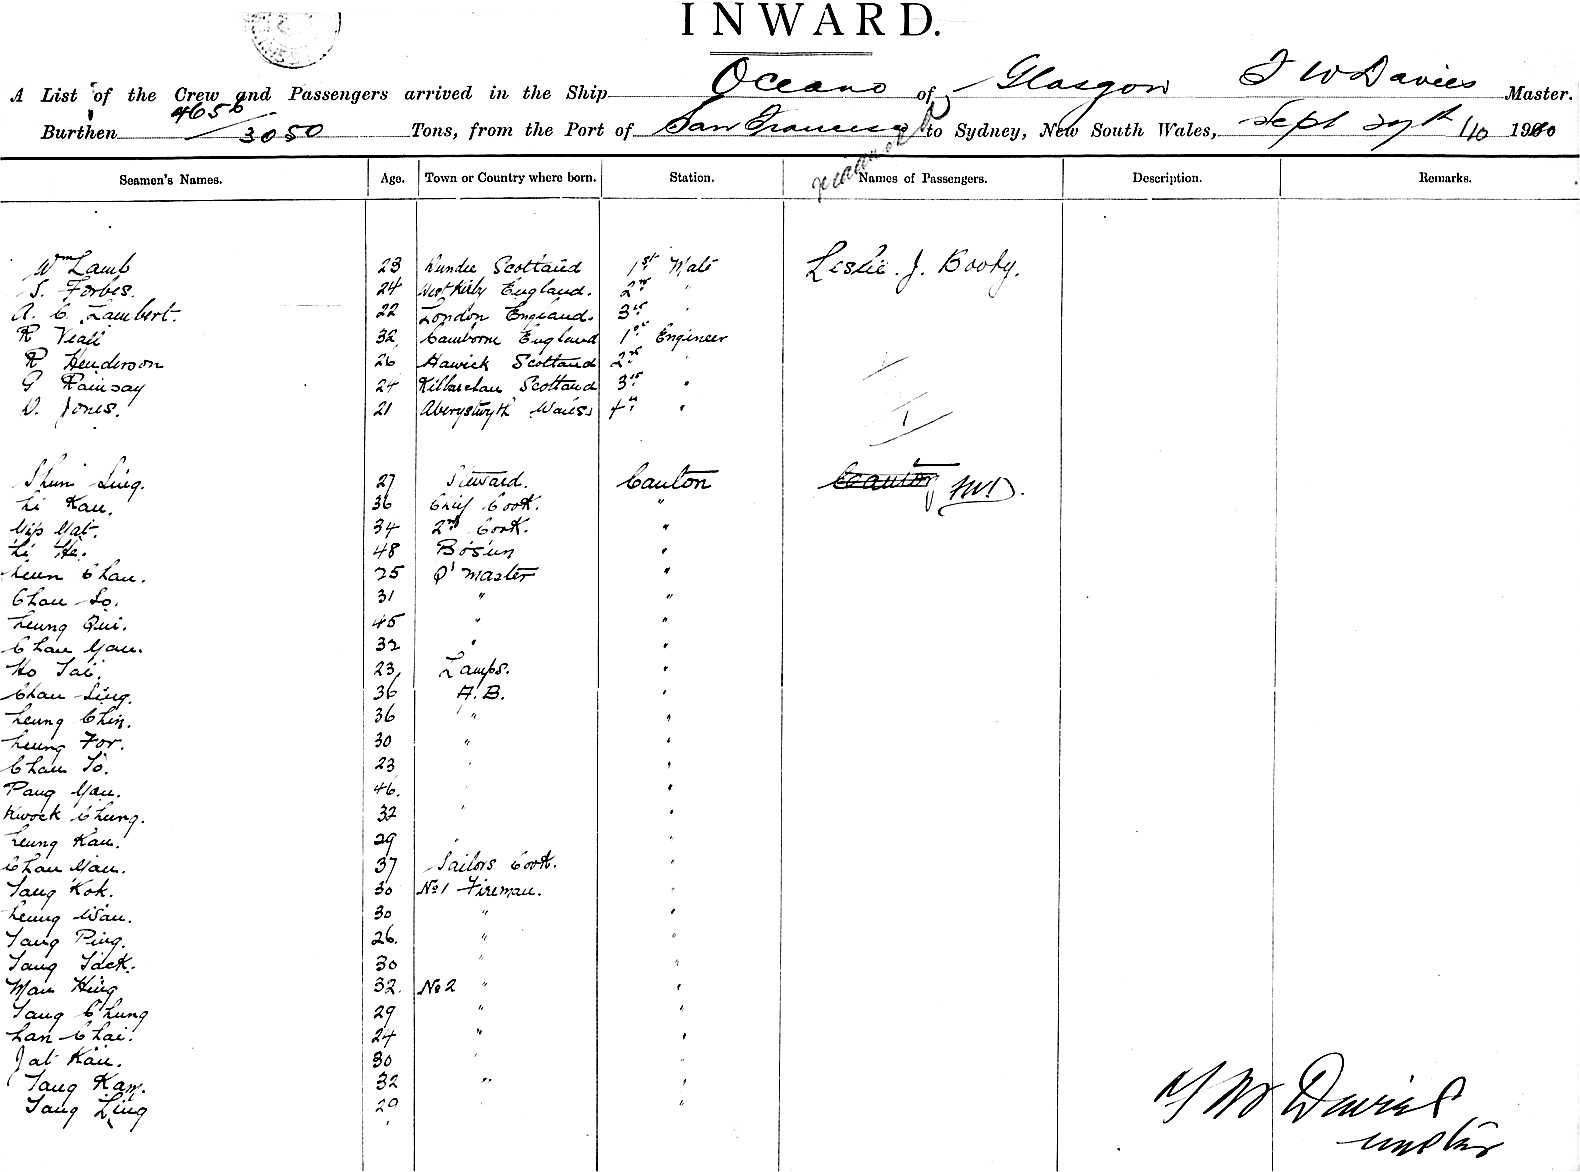 INWARD.
A List of the Crew and Passengers arrived in the Ship Oceano of Glasgow T W Davies Master.
Burthen 4656/3050 Tons, from the Port of San Francisco to Sydney, New South Wales, Sept 29th /10 19
Seamen's Names. Age. Town or Country where born. Station. Names of Passengers. Description. Remarks.
Wm Lamb 23 Dundee Scotland 1st Mate Leslie. J. Booty.
S. Forbes. 24 West Kirby England. 2nd "
A. C. Lambert. 22 London England. 3rd "
R Veall 32 Camborne England 1st Engineer
R Henderson 26 Hawick Scotland 2nd "
G Ramsay 24 Kilbarchan Scotland 3rd "
D. Jones. 21 Aberystwyth Wales 4th "
Shun Ling. 27 Steward. Canton Canton
Li Kau. 36 Chief Cook. "
Yip Yat. 34 2nd Cook. "
Li He. 48 Bosun "
Leun Chau. 25 Qr Master "
Chau So. 31 " "
Leung Qui. 45 " "
Chau Yau. 32 " "
Ho Tai. 23 Lamps. "
Chau Ling. 36 A.B. "
Leung Chin. 36 " "
Leung For. 30 " "
Chau To. 23 " "
Pang Yau. 46. " "
Kwock Chung. 32 " "
Leung Kau. 29 " "
Chau Yau. 37 Sailors Cook. "
Tang Kok. 30 No 1 Fireman. "
Leung Wau. 30 " "
Tang Ping. 26. " "
Tang Tack. 30 " "
Mau Hing 32. No 2 " "
Tang Chung 29 " "
Lan Chai. 24 " "
Jat Kau. 30 " "
Tang Kam. 32 " "
Tang Ling 20 " "
T W Davies
Master